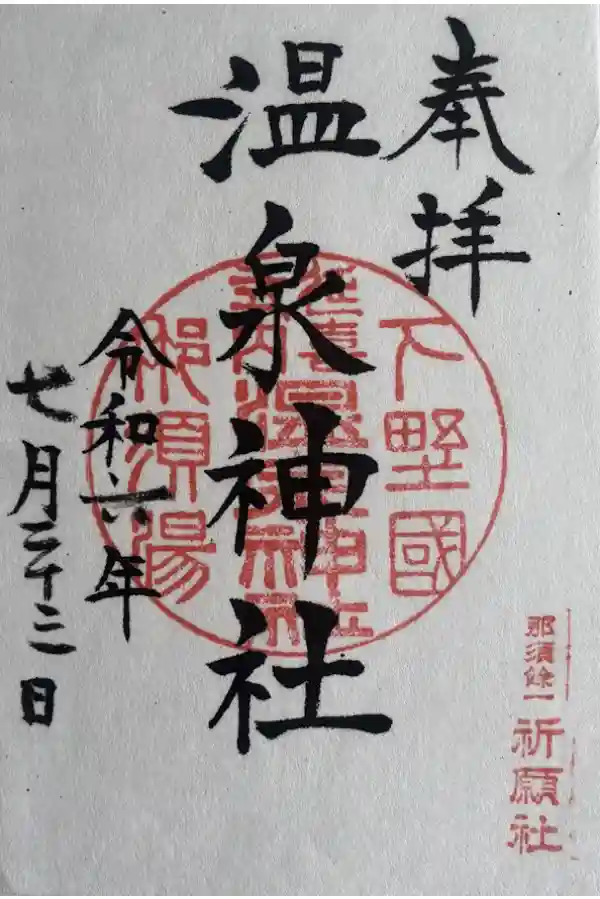 奉拝
下野國
那須餘一
祈願社
温泉神社
延喜
温泉神社
那須湯
令和六年
七月二十三日